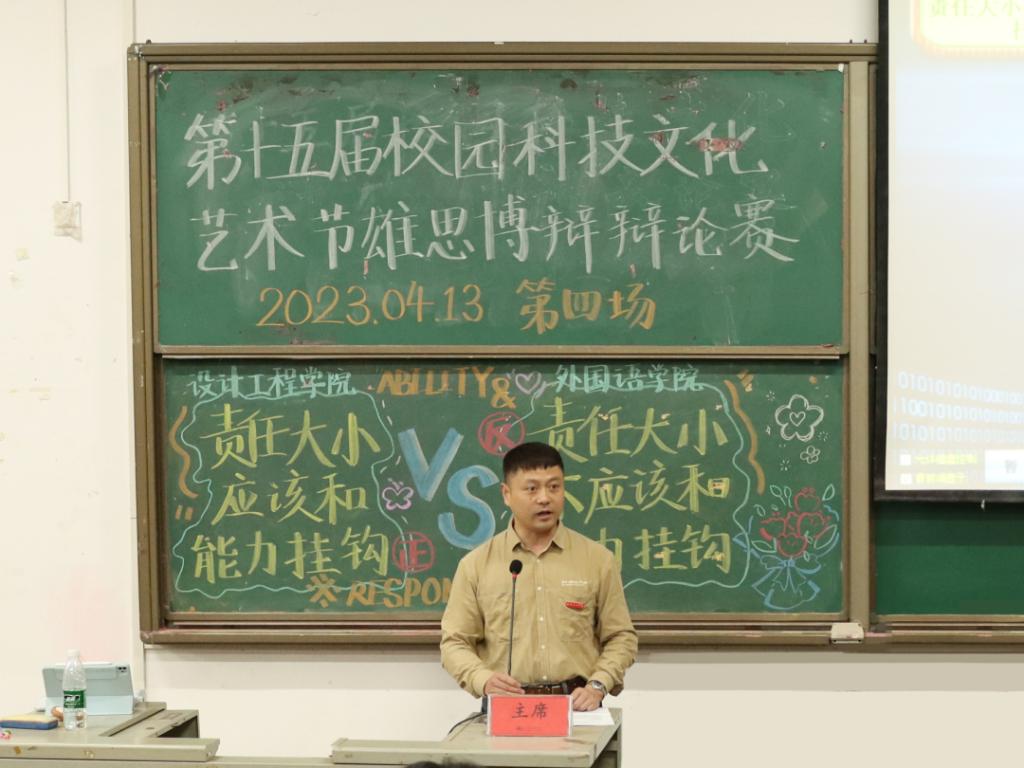 第十五届校园科技文化
艺术节雄思博辩辩论赛
2023.04.13 第四场
设计工程学院 ABILITY& 外国语学院
责任大小
应该和
能力挂钩
正
VS
反
责任大小
不应该和
力挂钩
※RESPON
主席
责任大小
01010101010001001